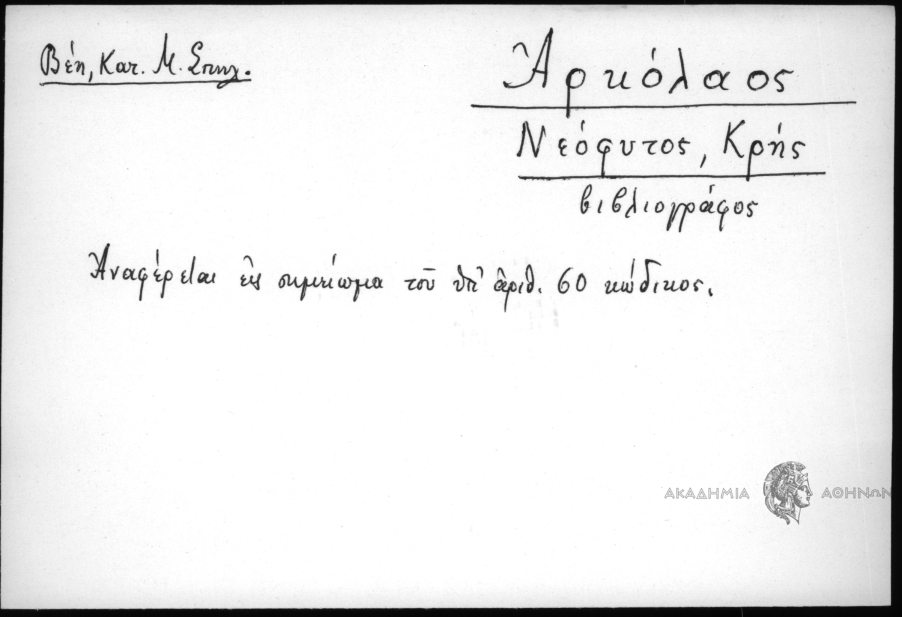 Βέη, Κατ. Μ. Σπηλ.
Ἀρκόλαος
Νεόφυτος, Κρής
βιβλιογράφος
Ἀναφέρεται εἰς σημείωμα τοῦ ὑπ' ἀριθ. 60 κώδικος.
ΑΚΑΔΗΜΙΑ ΑΘΗΝΩΝ